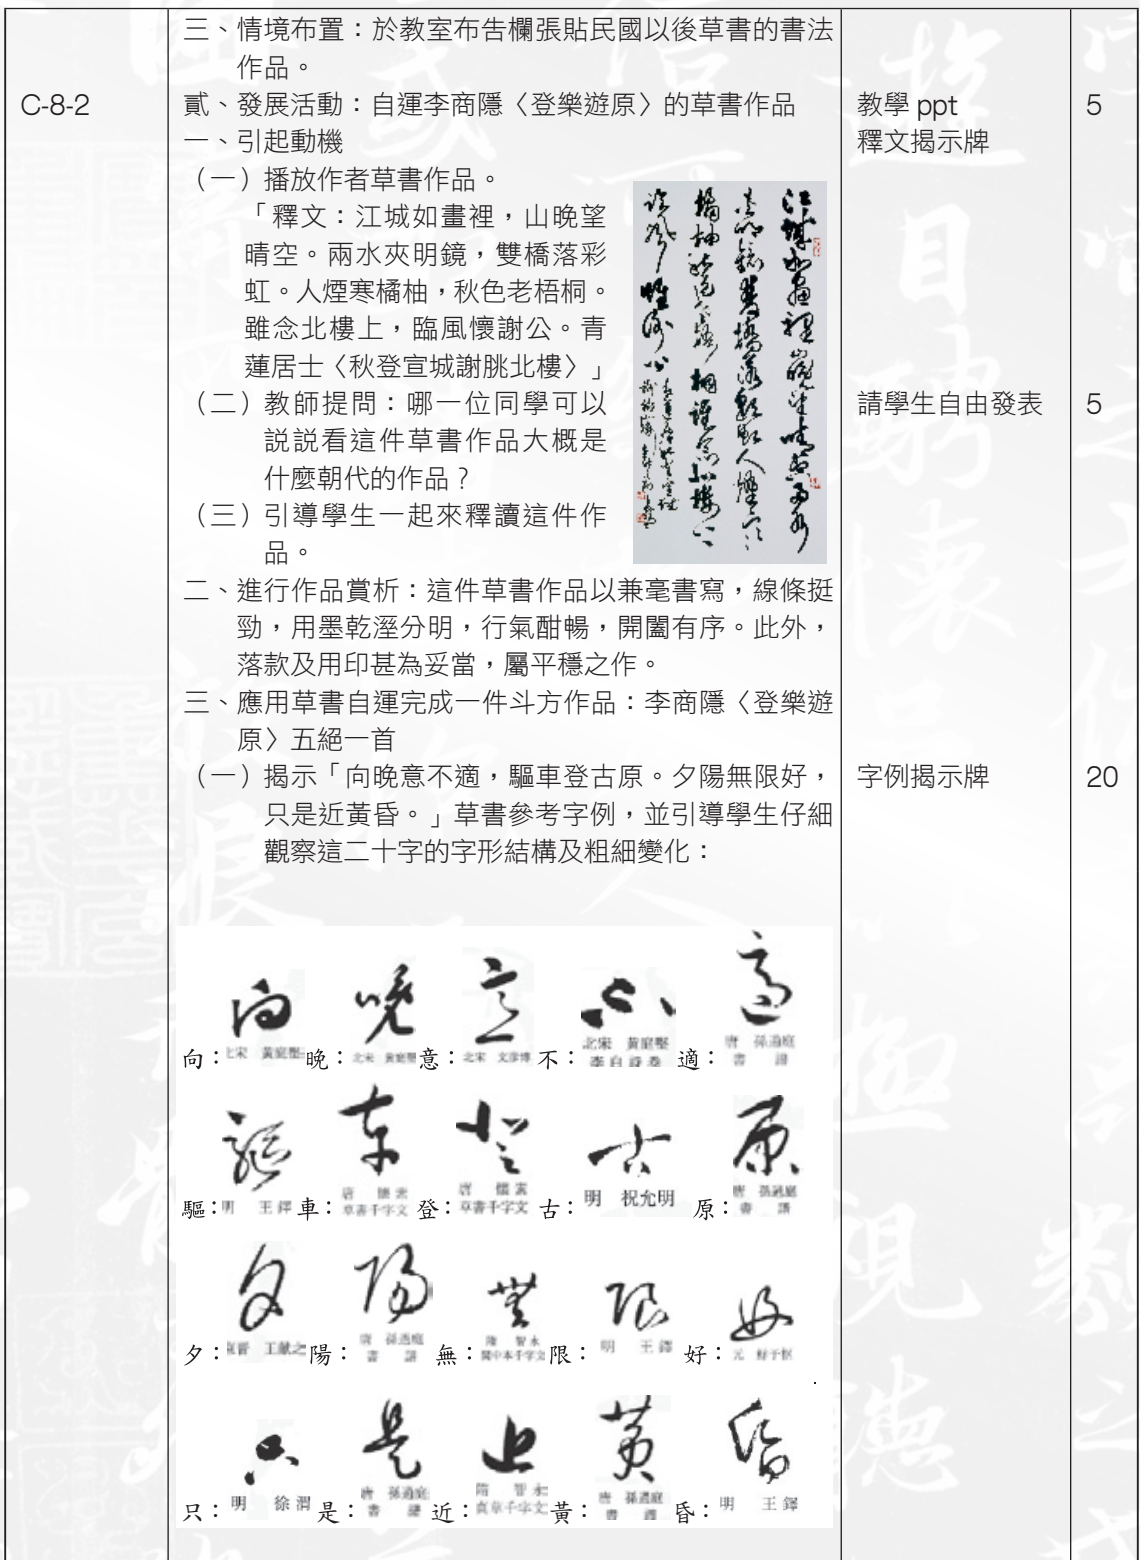 三、情境布置：於教室布告欄張貼民國以後草書的書法
作品。
C-8-2
貳、發展活動：自運李商隱〈登樂遊原〉的草書作品
教學 ppt
5
一、引起動機
釋文揭示牌
（一）播放作者草書作品。
「釋文：江城如畫裡，山晚望
晴空。兩水夾明鏡，雙橋落彩
虹。人煙寒橘柚，秋色老梧桐。
雖念北樓上，臨風懷謝公。青
蓮居士〈秋登宣城謝朓北樓〉」
（二）教師提問：哪一位同學可以
請學生自由發表
5
說說看這件草書作品大概是
什麼朝代的作品？
（三）引導學生一起來釋讀這件作
品。
二、進行作品賞析：這件草書作品以兼毫書寫，線條挺
勁，用墨乾溼分明，行氣酣暢，開闔有序。此外，
落款及用印甚為妥當，屬平穩之作。
三、應用草書自運完成一件斗方作品：李商隱〈登樂遊
原〉五絕一首
（一）揭示「向晚意不適，驅車登古原。夕陽無限好，
字例揭示牌
20
只是近黃昏。」草書參考字例，並引導學生仔細
觀察這二十字的字形結構及粗細變化：
向 晚 意 不 適
向：北宋 黃庭堅 晚：北宋 黃庭堅 意：北宋 文彥博 不：北宋 黃庭堅 李白詩卷 適：唐 孫過庭 書譜
驅 車 登 古 原
驅：明 王鐸 車：唐 懷素 草書千字文 登：唐 懷素 草書千字文 古：明 祝允明 原：唐 孫過庭 書譜
夕 陽 無 限 好
夕：東晉 王獻之 陽：唐 孫過庭 書譜 無：隋 智永 關中本千字文 限：明 王鐸 好：元 鮮于樞
只 是 近 黃 昏
只：明 徐渭 是：唐 孫過庭 書譜 近：隋 智永 真草千字文 黃：唐 孫過庭 書譜 昏：明 王鐸